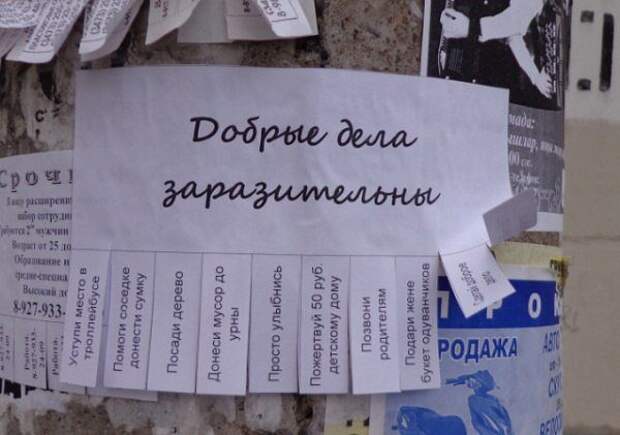 Добрые дела
заразительны
Уступи место в
троллейбусе
Помоги соседке
донести сумку
Посади дерево
Донеси мусор до
урны
Просто улыбнись
Пожертвуй 50 руб.
детскому дому
Позвони
родителям
Подари жене
букет одуванчиков
Срочн
набор сотрудн
Возраст от 25 до
Образование н
Высокий до
8-927-933-
ПРО
РОДАЖА
АВТО